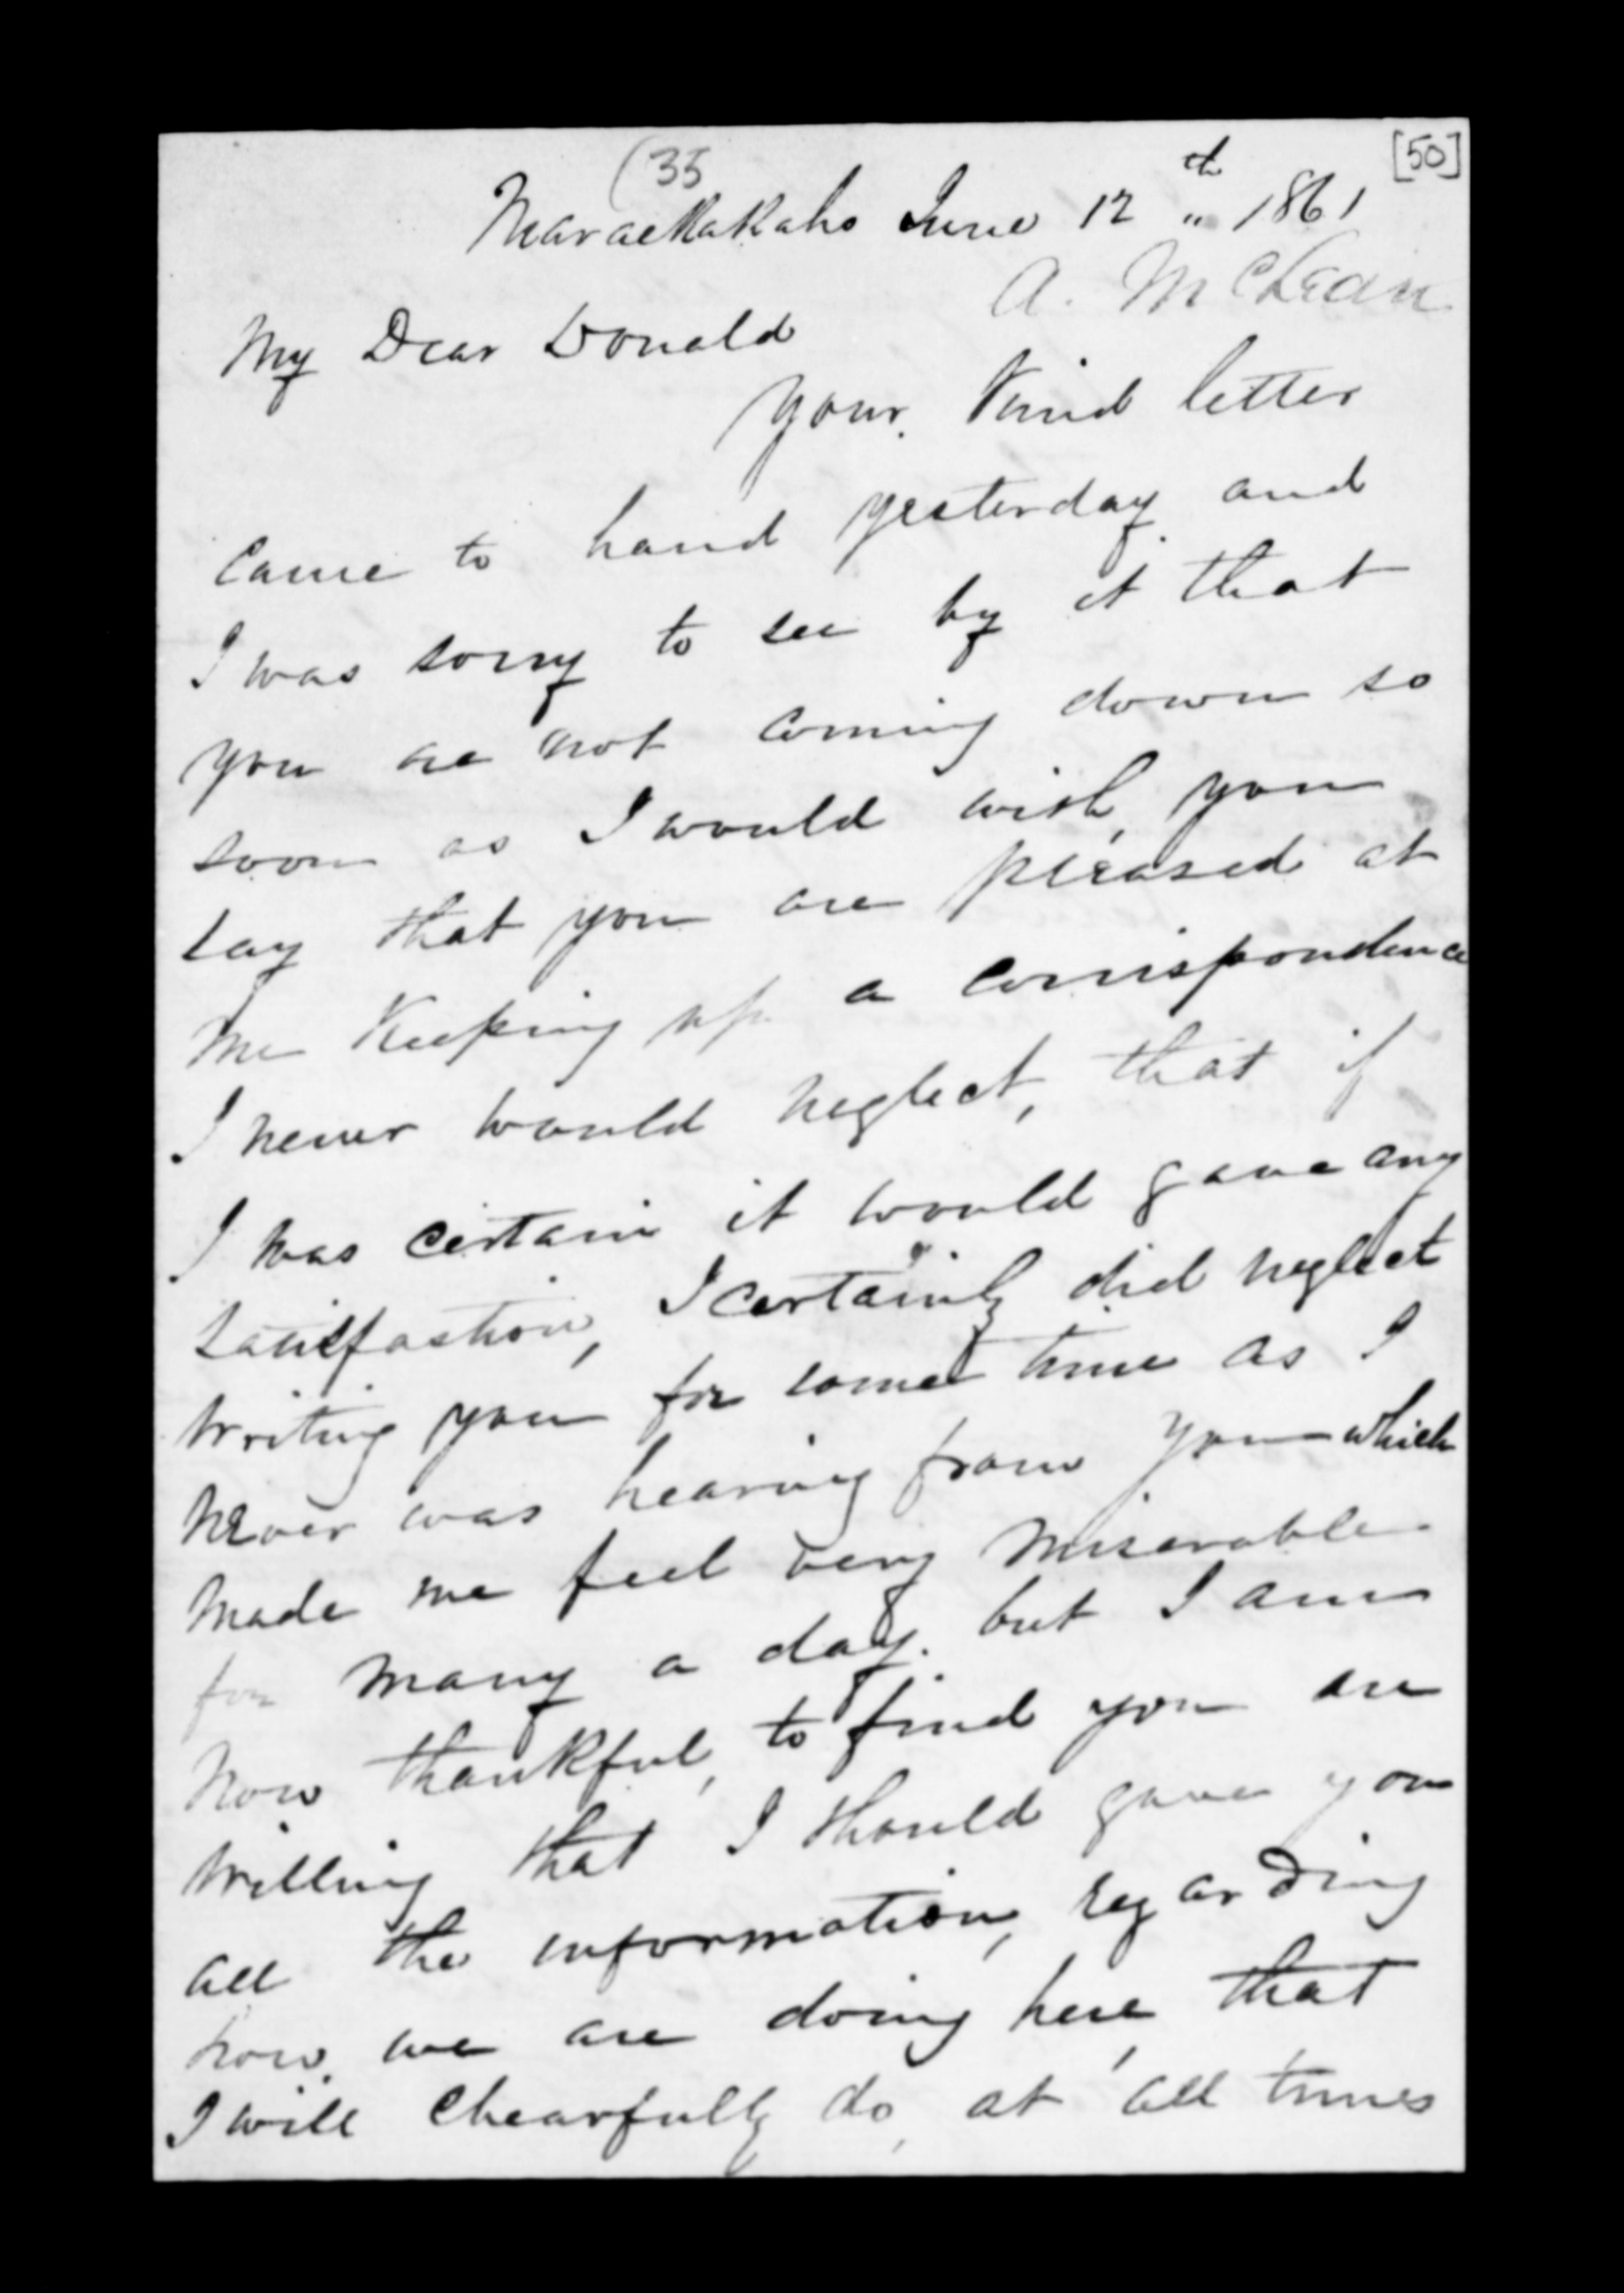 (35
[50]
Maraekakaho June 12th „ 1861
A. McLean
My Dear Donald
Your kind letter
Came to hand yesterday and
I was sorry to see by it that
you are not coming down so
soon as I would wish, you
say that you are pleased at
me Keeping up a corrispondence
I never would neglect, that if
I was certain it would gave any
satisfaction, I certainly did neglect
writing you for some time as I
never was hearing from you which
made me feel very miserable
for many a day. but I am
now thankful, to find you are
willing that I should gave you
all the information, regarding
how we are doing here, that
I will chearfully do, at all times